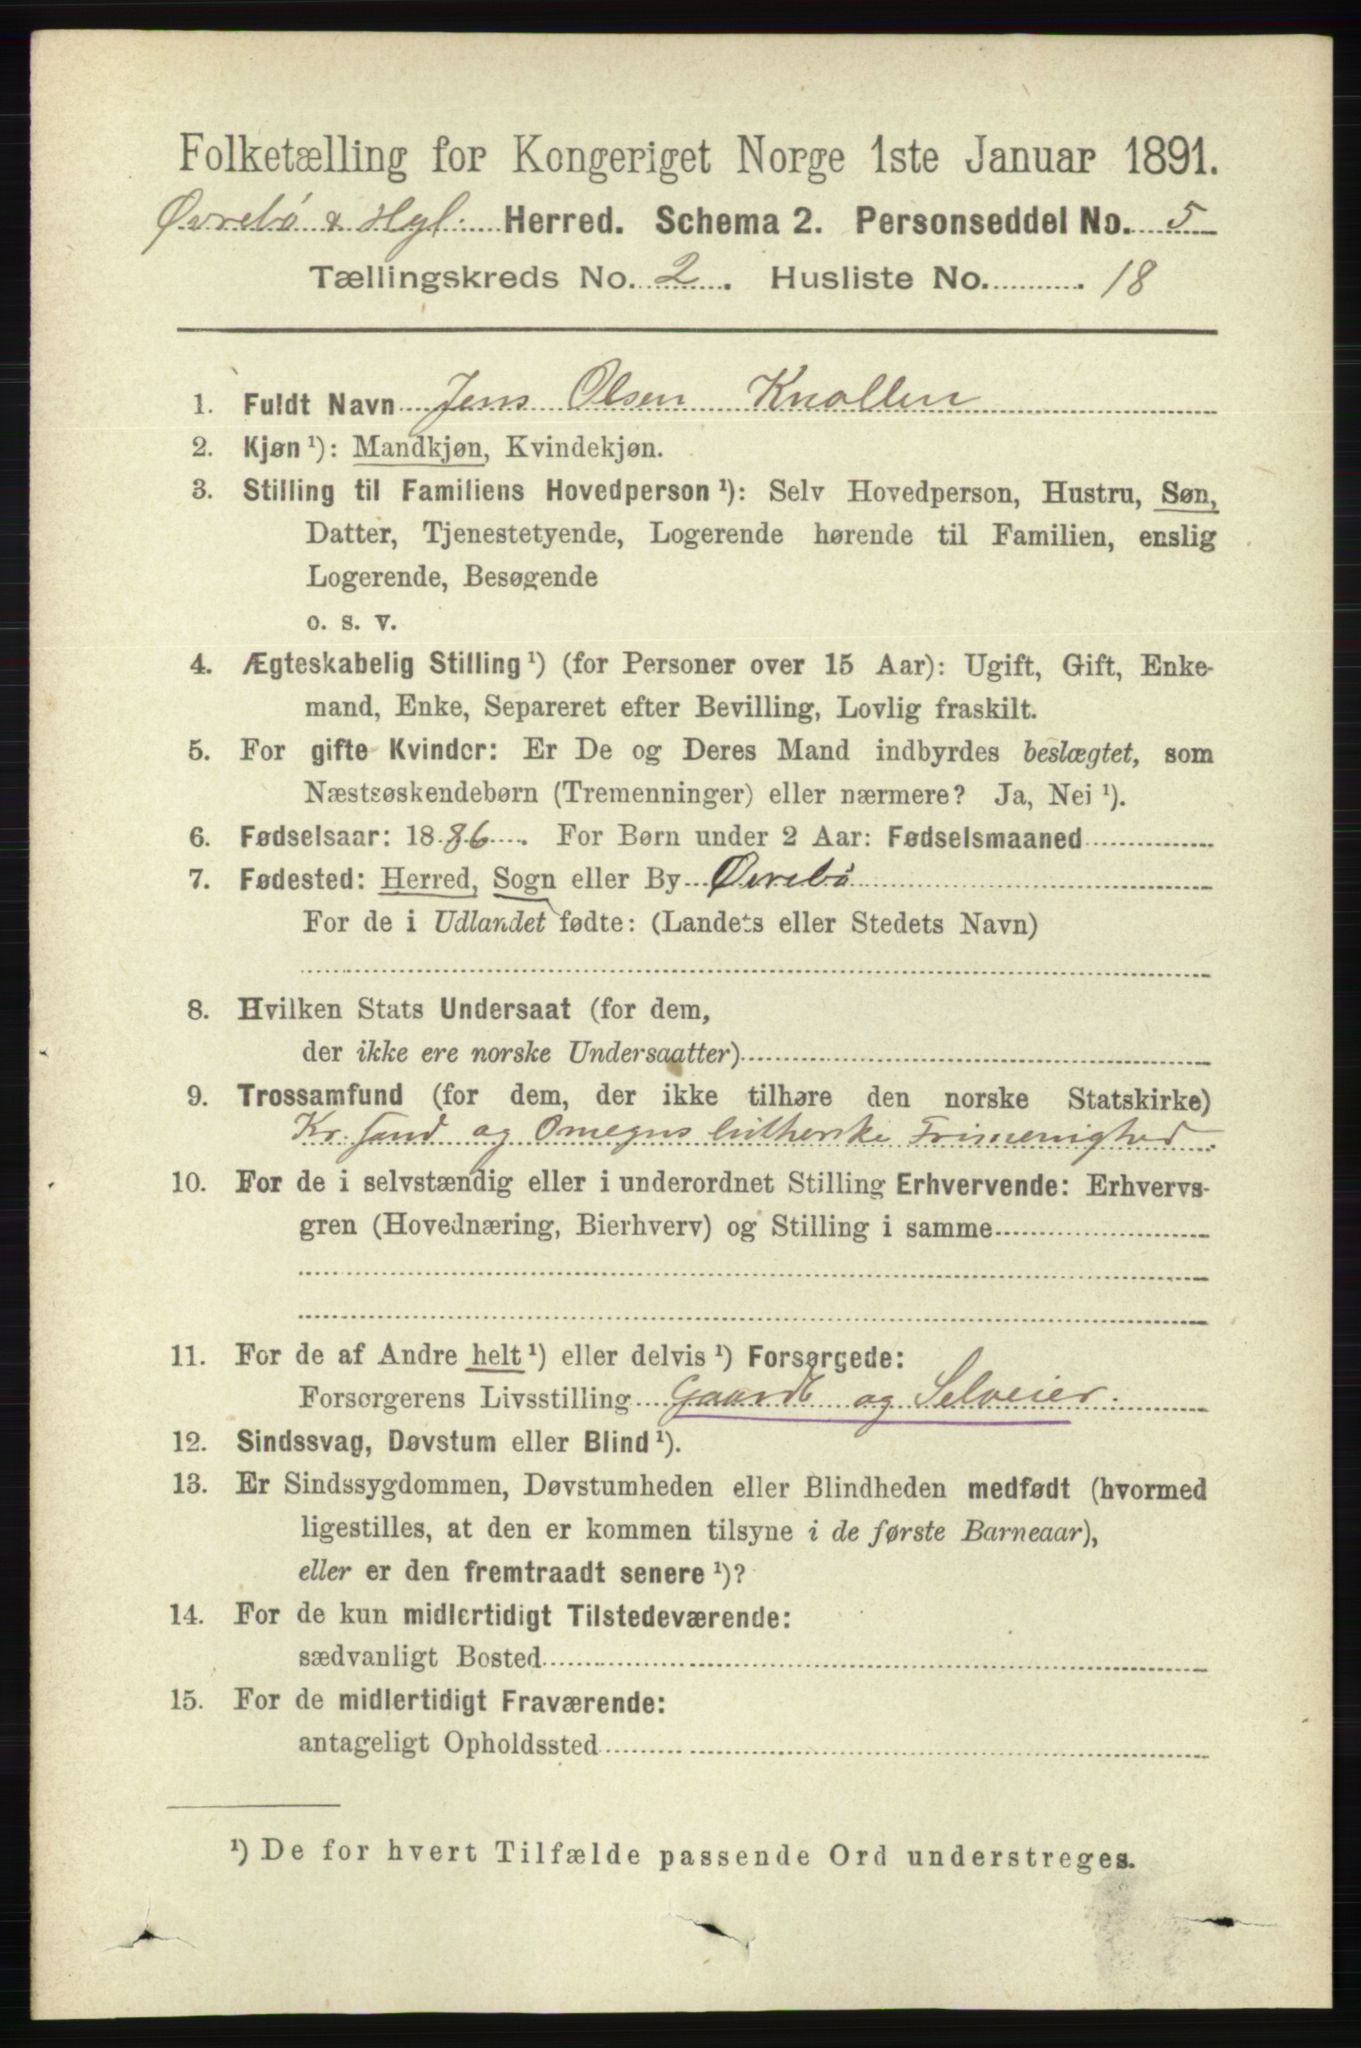 Folketælling for Kongeriget Norge 1ste Januar 1891.
Øvrebö & Hgl. Herred. Schema 2. Personseddel No. 5
Tællingskreds No. 2. Husliste No. 18
1. Fuldt Navn Jens Olsen Knollen
2. Kjøn ¹): Mandkjøn, Kvindekjøn.
3. Stilling til Familiens Hovedperson ¹): Selv Hovedperson, Hustru, Søn,
Datter, Tjenestetyende, Logerende hørende til Familien, enslig
Logerende, Besøgende
o. s. v.
4. Ægteskabelig Stilling ¹) (for Personer over 15 Aar): Ugift, Gift, Enke-
mand, Enke, Separeret efter Bevilling, Lovlig fraskilt.
5. For gifte Kvinder: Er De og Deres Mand indbyrdes beslægtet, som
Næstsøskendebørn (Tremenninger) eller nærmere? Ja, Nei ¹).
6. Fødselsaar: 1886. For Børn under 2 Aar: Fødselsmaaned
7. Fødested: Herred, Sogn eller By Øvrebö
For de i Udlandet fødte: (Landets eller Stedets Navn)
8. Hvilken Stats Undersaat (for dem,
der ikke ere norske Undersaatter)
9. Trossamfund (for dem, der ikke tilhøre den norske Statskirke)
Kr.sand og Omegns lutherske Frimenighed.
10. For de i selvstændig eller i underordnet Stilling Erhvervende: Erhvervs-
gren (Hovednæring, Bierhverv) og Stilling i samme
11. For de af Andre helt ¹) eller delvis ¹) Forsørgede:
Forsørgerens Livsstilling Gaardb og Selveier.
12. Sindssvag, Døvstum eller Blind ¹).
13. Er Sindssygdommen, Døvstumheden eller Blindheden medfødt (hvormed
ligestilles, at den er kommen tilsyne i de første Barneaar),
eller er den fremtraadt senere ¹)?
14. For de kun midlertidigt Tilstedeværende:
sædvanligt Bosted
15. For de midlertidigt Fraværende:
antageligt Opholdssted
¹) De for hvert Tilfælde passende Ord understreges.